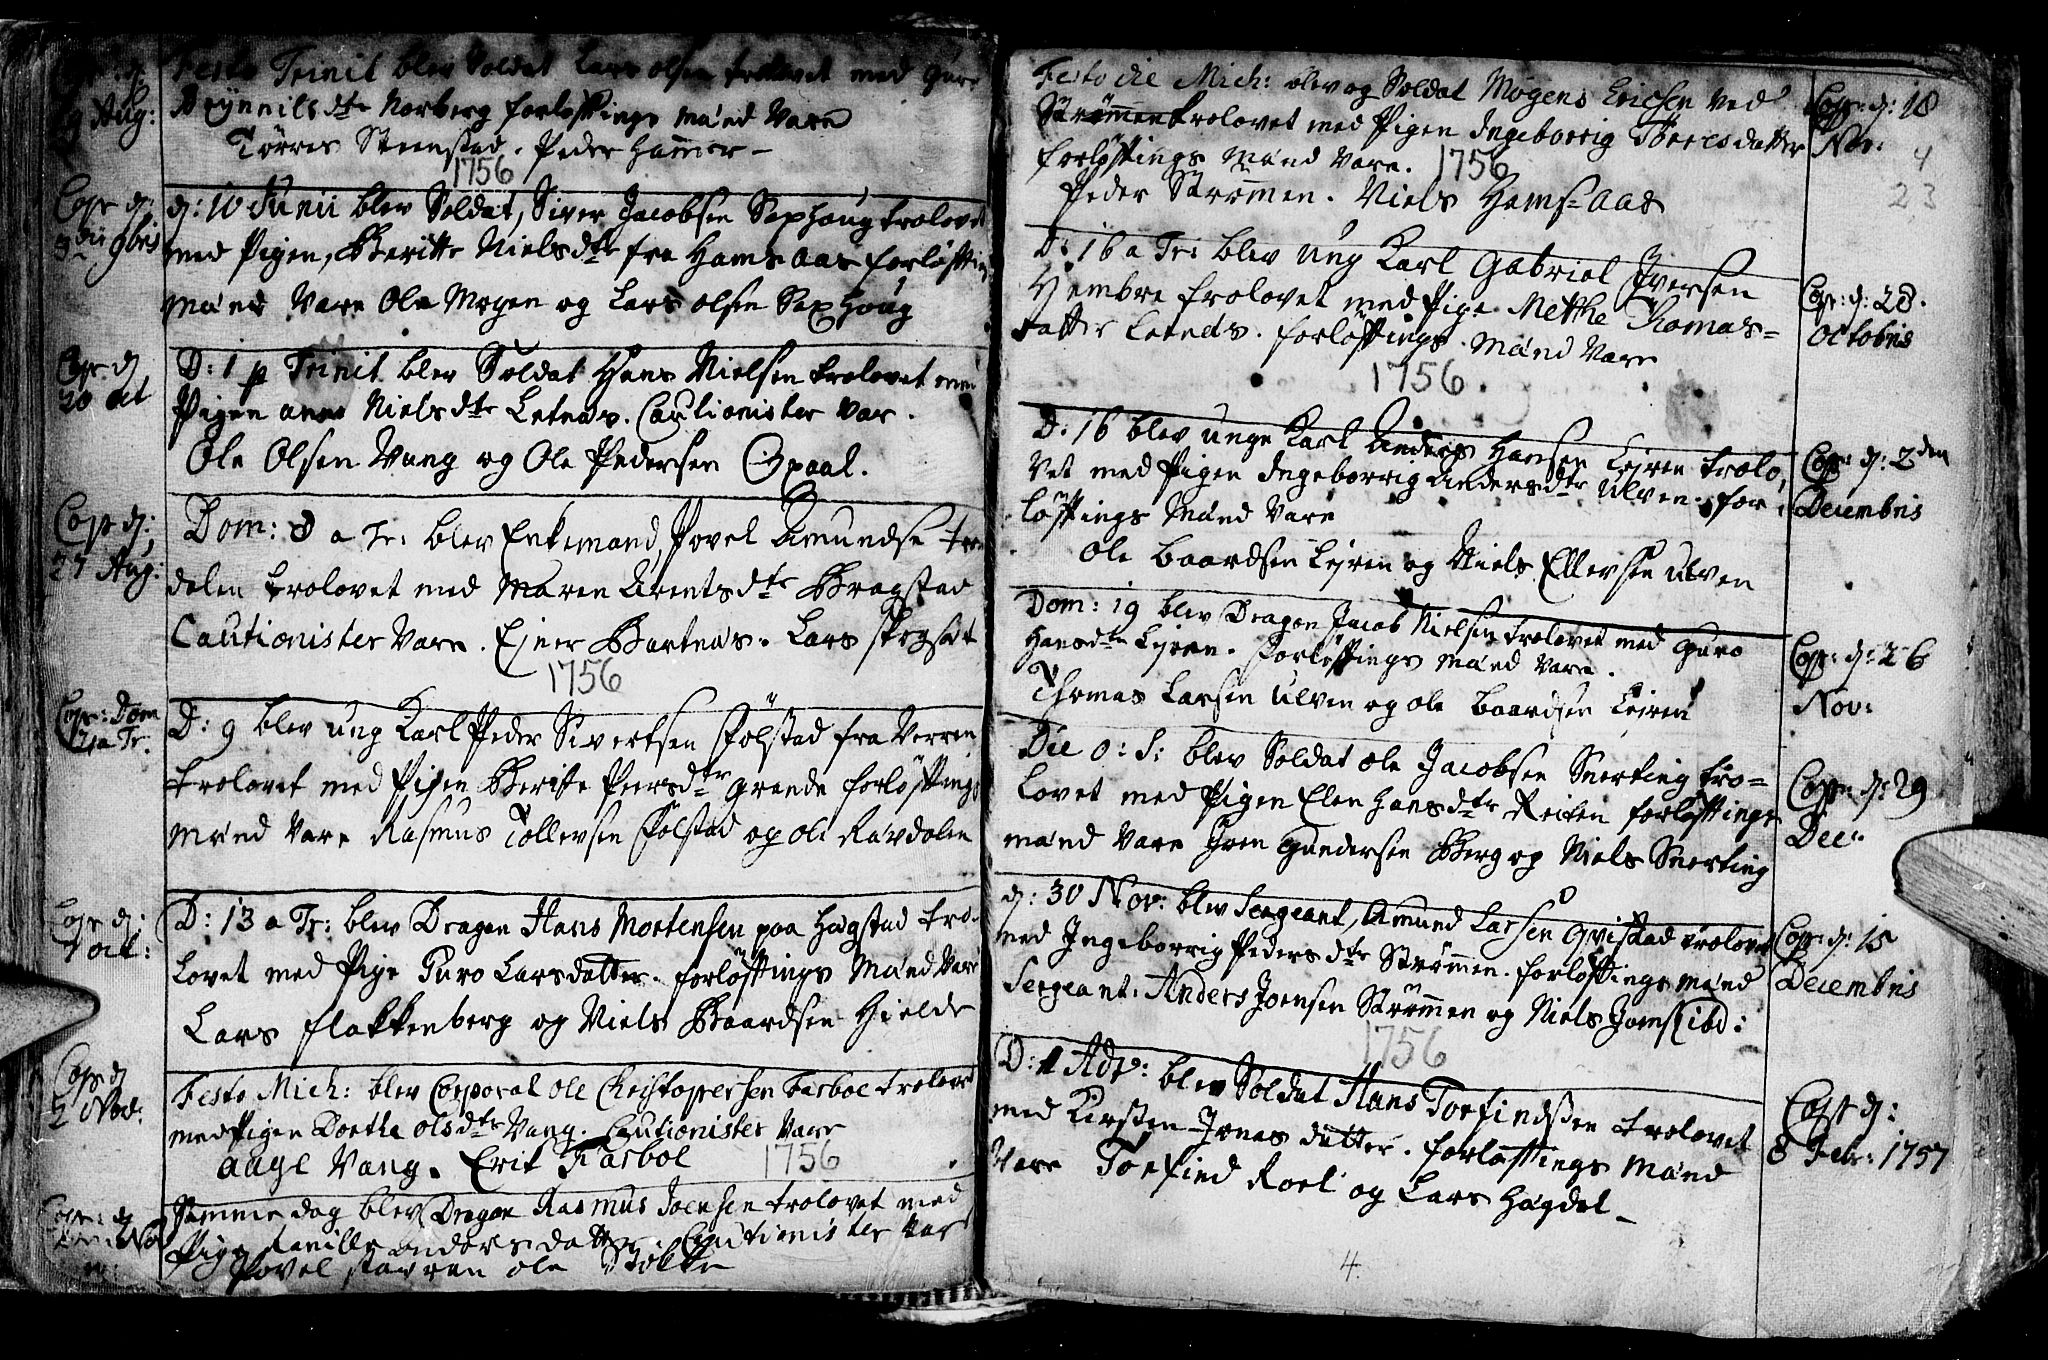 Festo Trinit blev Soldat Lars olsen trolovet med Guro
Brynnilsdtr Norberg forløftings Mænd Vare
Törres Steenstad. Peder Hammer –
1756
Cop: d:
29 Aug:
d: 10 Junii blev Soldat, Siver Jacobsen Saxhoug trolovet
med Pigen, Beritte Nielsdtr fra HamsAas forløftings
Mænd Vare Ole Mogen og Lars olsen Saxhoug
Cop d:
9bris
D: 1 p Trinit blev Soldat Hans Nielsen trolovet med
Pigen anne Nielsdtr Letnæs. Cautionister var.
Ole Olsen Vang og Ole Pedersen Opaal.
Cop: d
20 oct
Dom: 3 a Tr: blev Enkemand, Povel Amundse
dalen trolovet med Maren Arentsdtr Bragstad
Cautionister Vare. Ejner Bartnæs. Lars
1756
Cop d:
27 Aug:
D: 9 blev ung Karl Peder Sivertsen Følstad fra Verren
trolovet med Pigen Beritte Peersdtr Grande forløftings
Mænd Vare Rasmus Tollevsen Følstad og ole Ravdalen
Cop: Dom
a Tr.
D: 13 a Tr: blev Dragon Hans Mortensen paa Hagstad tro-
Lovet med Pige Guro Larsdatter. forløftings Mænd Vare
Lars flakkenberg og Niels Baardsen Hielde
Cop d:
7 oct:
Festo Mich: blev Corporal ole Christophersen Farboe trolovet
med Pigen Dorthe olsdtr Vang. Cautionister Vare
Aage Vang. Erik Farboe 1756
Cop d
2 Nov:
Samme dag blev Dragon Rasmus Joensen trolovet med
Pige andersdatter. Cautionister var
Povel ole Stokke
Cop: d
Festo die Mich: blev og Soldat Mogens Ericsen ved
Strømmen trolovet med Pigen Ingeborrig Torresdatter
forløftings Mænd Vare. 1756
Peder Strømmen. Niels Hems=Aas
Cop: d: 18
Nov:
4
23
D: 16 a Tr: blev ung Karl Gabriel Iversen
Hembre trolovet med Pige Methe Thomas=
datter Letnæs. forløftings Mænd Vare
1756
Cop: d: 28.
Octobris
D: 16 blev unge Karl Anders Hansen Lejren trolo,
vet med Pigen Ingeborrig Andersdtr Ulven. for
løftings Mænd Vare
Ole Baardsen Lejren og Niels Ellevsen Ulven
Cop: d: 2den
Decembris
Dom: 19 blev Dragon Jacob Nielsen trolovet med Guro
Hansdtr Lejren. forløftings Mænd Vare.
Thomas Larsen Ulven og ole Baardsen Lejren
Cop: d: 26
Nov:
Die O: S: blev Soldat ole Jacobsen Snerting tro=
Lovet med Pigen Elen Hansdtr Reiten forløftings
mænd Vare Joen Gundersen Berg og Niels Snerting
Cop: d: 29
Dec:
d: 30 Nov: blev Sergeant, Amund Larsen Qvistad trolovet
med Ingeborrig Pedersdtr Strømmen. forløftings mænd
Sergeant: Anders Joensen Strømmen og Niels Joens ibd:
1756
Cop: d: 15
Decembris
D: 1 Adv: blev Soldat Hans Torfindsen trolovet
med Kirsten Jonas datter. forløftings Mænd
Vare Torfind Roel og Lars Hagdal –
Cop d:
8 Febr: 1757
4.